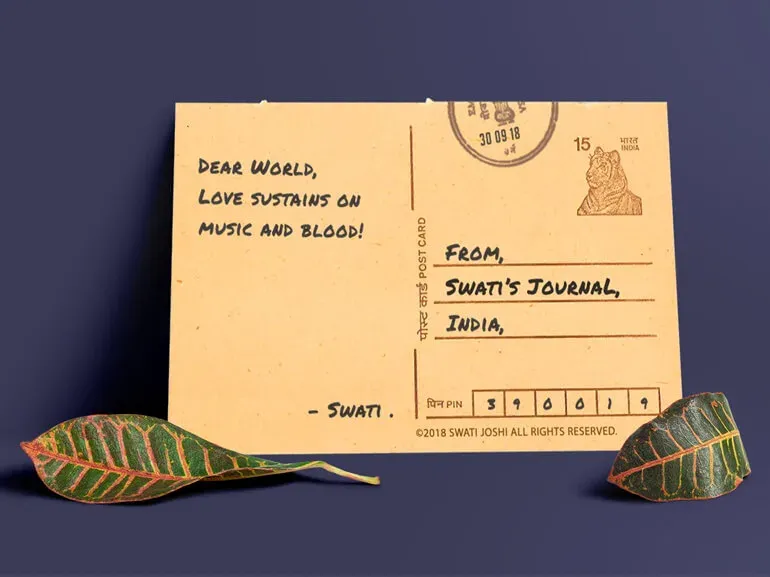 DEAR WORLD,
LOVE SUSTAINS ON
MUSIC AND BLOOD!
- SWATI.
पोस्ट कार्ड POST CARD
30 09 18
15
भारत
INDIA
FROM,
SWATI'S JOURNAL,
INDIA,
पिन PIN 3 9 0 0 1 9
©2018 SWATI JOSHI ALL RIGHTS RESERVED.